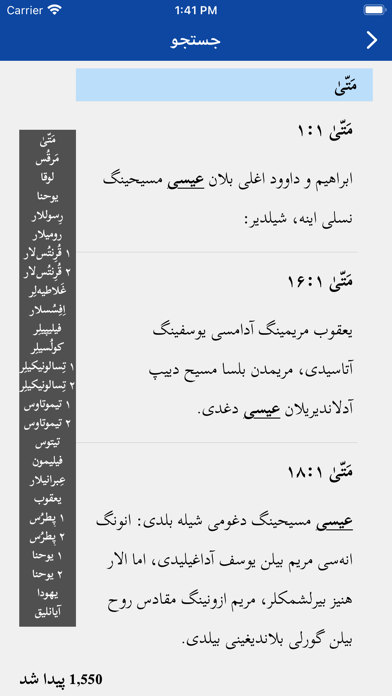 Carrier 1:41 PM
جستجو
مَتّیٰ
مَتّیٰ ۱:۱
ابراهیم و داوود اغلی بلان عیسی مسیحینگ
نسلی اینه، شیلدیر:
مَتّیٰ ۱۶:۱
یعقوب مریمینگ آدامسی یوسفینگ
آتاسیدی، مریمدن بلسا مسیح دییپ
آدلاندیریلان عیسی دغدی.
مَتّیٰ ۱۸:۱
عیسی مسیحینگ دغومی شیله بلدی: انونگ
انه‌سی مریم بیلن یوسف آداغیلیدی، اما الار
هنیز بیرلشمکلر، مریم ازونینگ مقادس روح
بیلن گورلی بلاندیغینی بیلدی.
مَتّیٰ
مَرقُس
لوقا
یوحنا
رِسوللار
رومیلار
۱ قُرِنتُس‌لار
۲ قُرِنتُس‌لار
غَلاطیه‌لِر
اِفِسُسلار
فیلیپیلِر
کولُسیلِر
۱ تِسالونیکیلِر
۲ تِسالونیکیلِر
۱ تیموتاوس
۲ تیموتاوس
تیتوس
فیلیمون
عِبرانیلار
یعقوب
۱ پِطرُس
۲ پِطرُس
۱ یوحنا
۲ یوحنا
یهودا
آیانلیق
1,550 پیدا شد